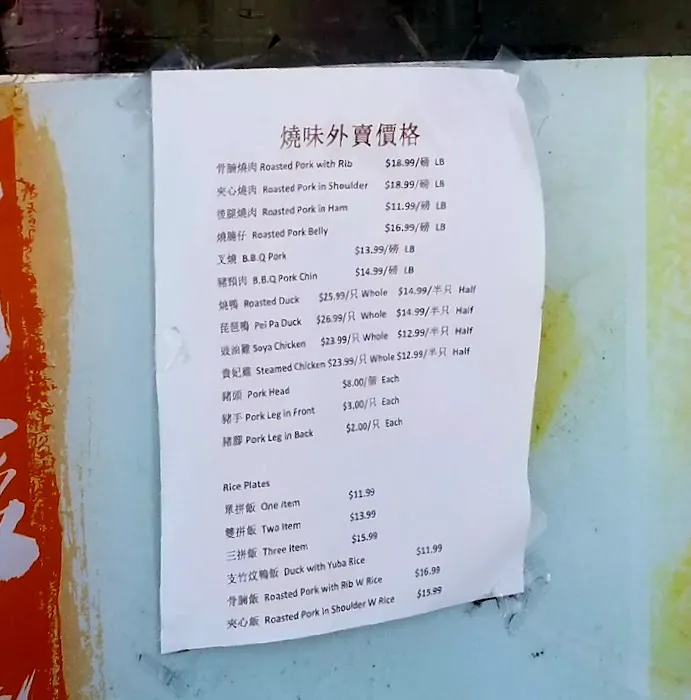 燒味外賣價格
骨腩燒肉 Roasted Pork with Rib $18.99/磅 LB
夾心燒肉 Roasted Pork in Shoulder $18.99/磅 LB
後腿燒肉 Roasted Pork in Ham $11.99/磅 LB
燒腩仔 Roasted Pork Belly $16.99/磅 LB
叉燒 B.B.Q Pork $13.99/磅 LB
豬頸肉 B.B.Q Pork Chin $14.99/磅 LB
燒鴨 Roasted Duck $25.99/只 Whole $14.99/半只 Half
琵琶鴨 Pei Pa Duck $26.99/只 Whole $14.99/半只 Half
豉油雞 Soya Chicken $23.99/只 Whole $12.99/半只 Half
貴妃雞 Steamed Chicken $23.99/只 Whole $12.99/半只 Half
豬頭 Pork Head $8.00/個 Each
豬手 Pork Leg in Front $3.00/只 Each
豬腳 Pork Leg in Back $2.00/只 Each
Rice Plates
單拼飯 One Item $11.99
雙拼飯 Two Item $13.99
三拼飯 Three Item $15.99
支竹炆鴨飯 Duck with Yuba Rice $11.99
骨腩飯 Roasted Pork with Rib W Rice $16.99
夾心飯 Roasted Pork in Shoulder W Rice $15.99